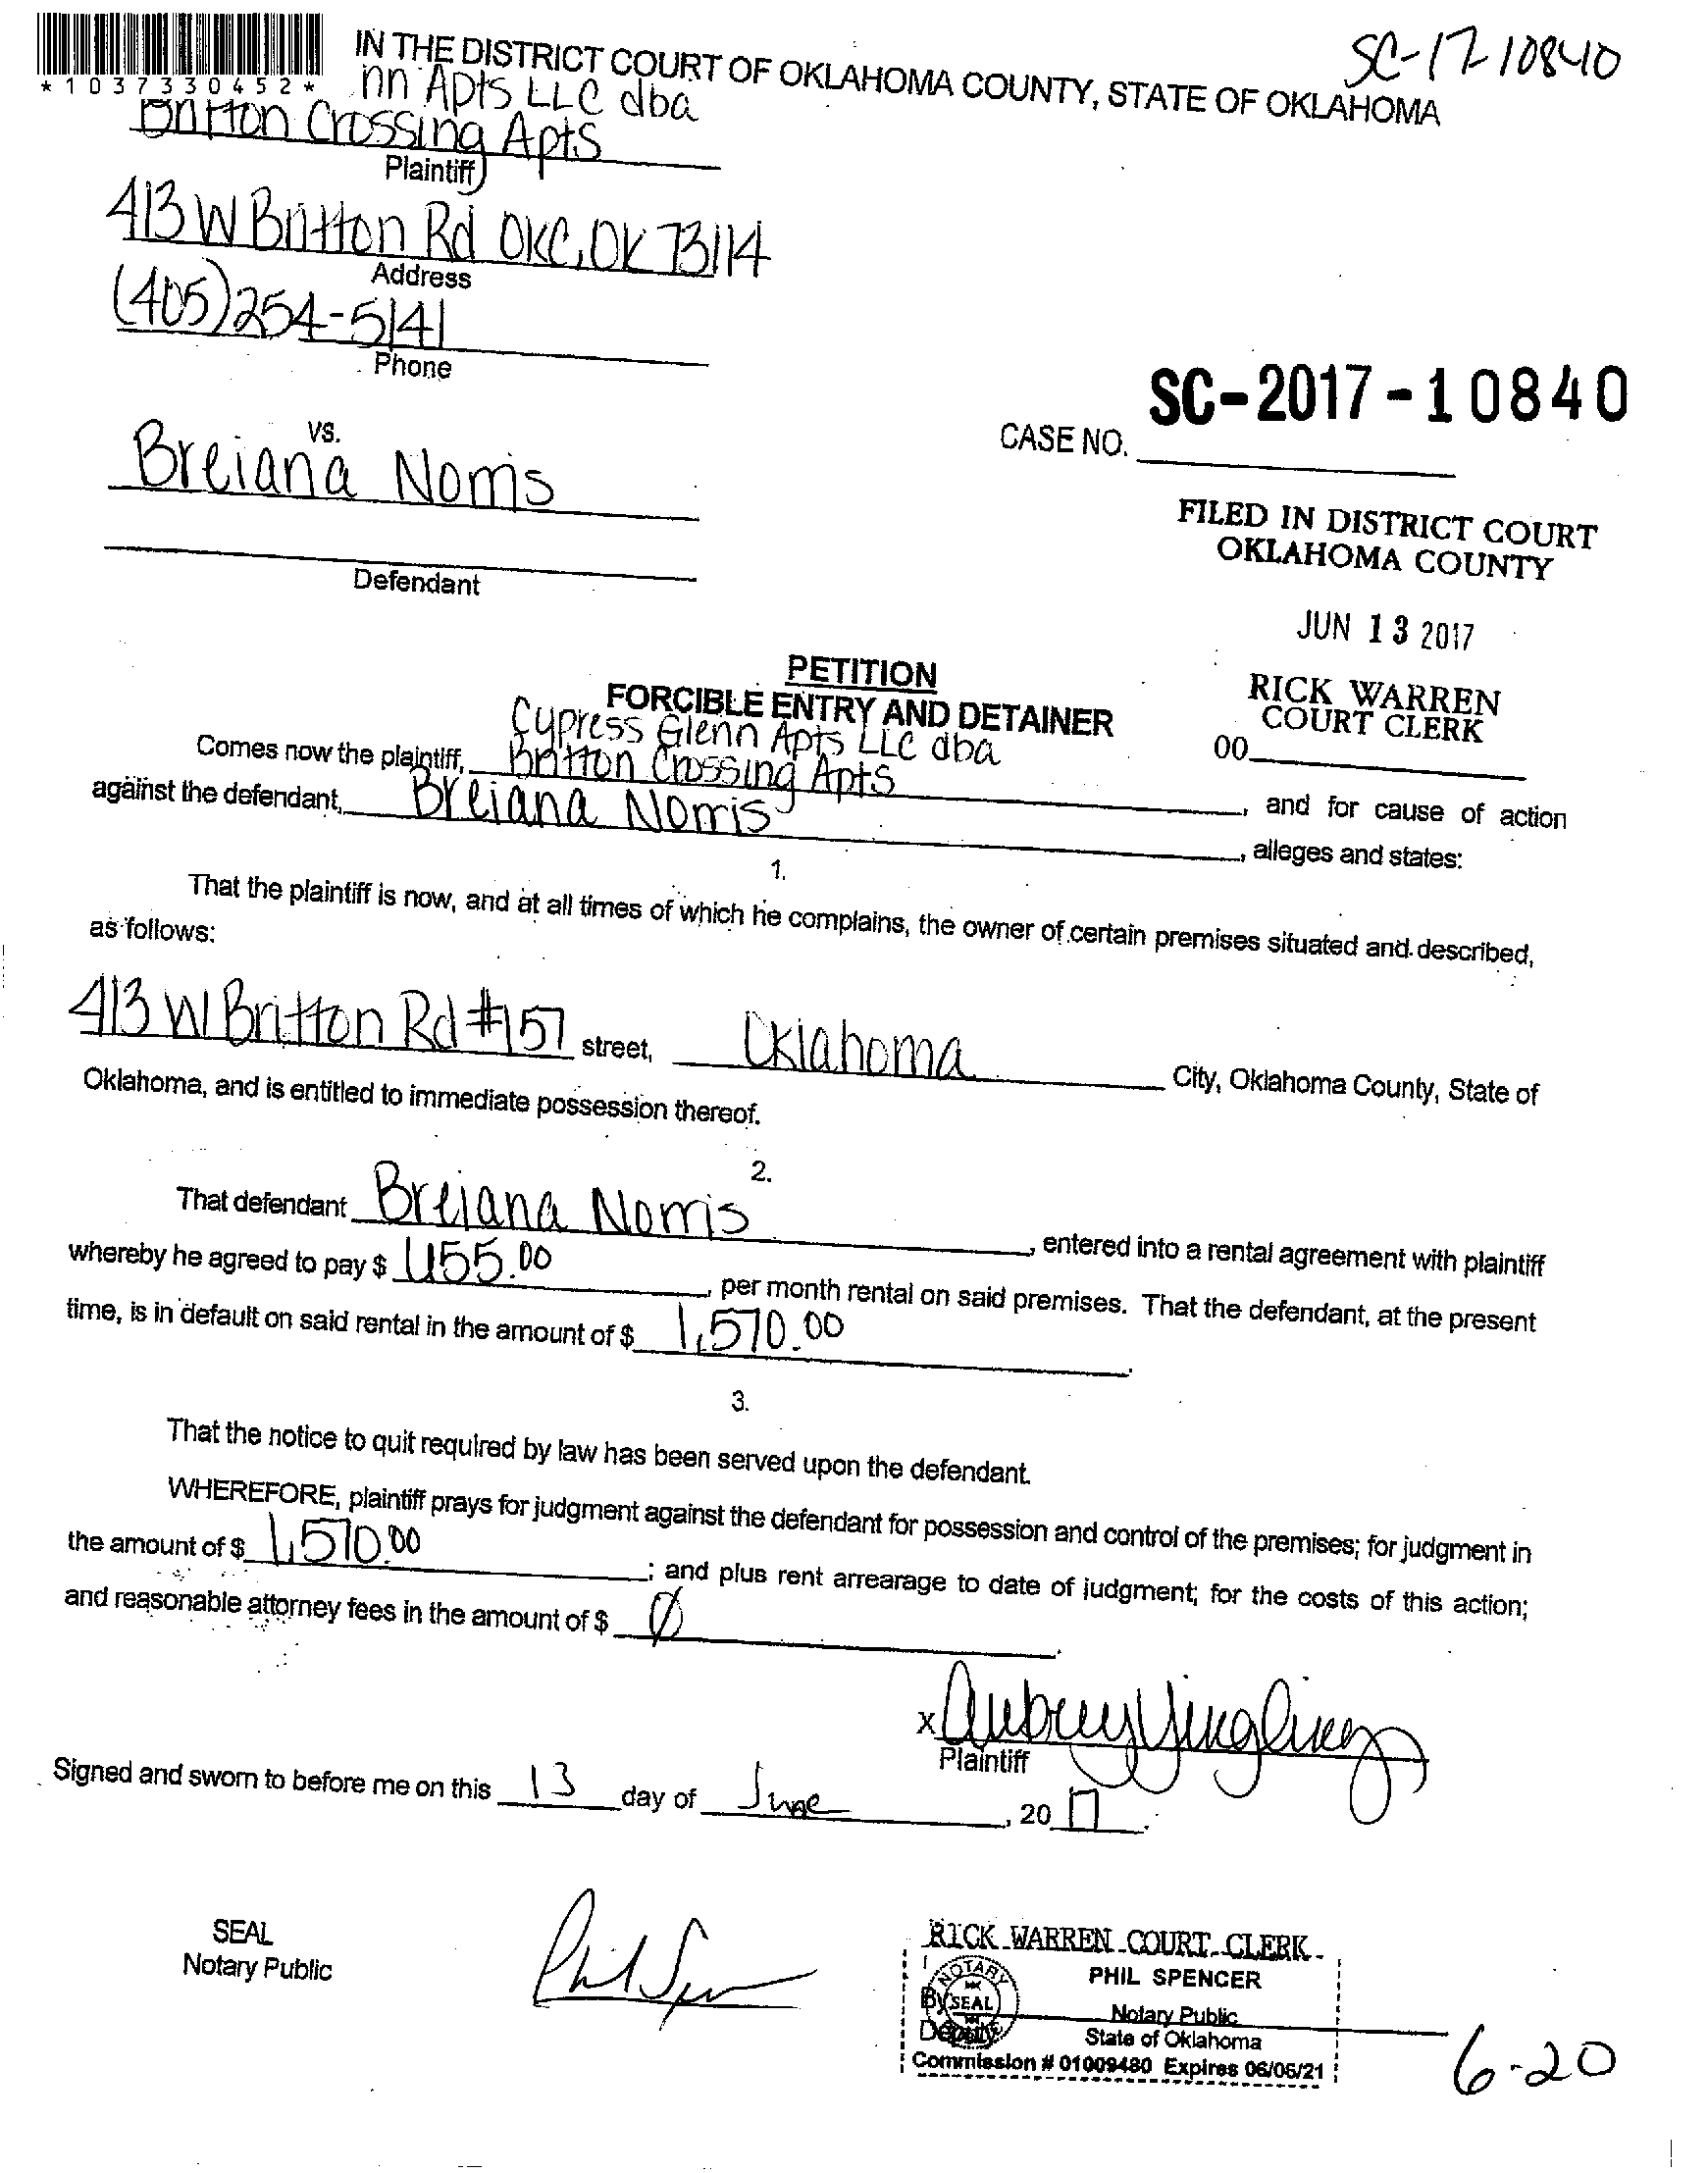 *10373304 52*
IN THE DISTRICT COURT OF OKLAHOMA COUNTY, STATE OF OKLAHOMA
SC-17-10840
nn Apts LLC dba
Britton Crossing Apts
Plaintiff
413 W Britton Rd OKC, OK 73114
Address
(405)254-5141
Phone
SC-2017-10840
CASE NO.
vs.
Breiana Norris
Defendant
FILED IN DISTRICT COURT
OKLAHOMA COUNTY
JUN 13 2017
RICK WARREN
COURT CLERK
00
PETITION
FORCIBLE ENTRY AND DETAINER
Cypress Glenn Apts LLC dba
Comes now the plaintiff, Britton Crossing Apts, and for cause of action
against the defendant, Breiana Norris, alleges and states:
1.
That the plaintiff is now, and at all times of which he complains, the owner of certain premises situated and described,
as follows:
413 W Britton Rd #157 street, Oklahoma City, Oklahoma County, State of
Oklahoma, and is entitled to immediate possession thereof.
2.
That defendant Breiana Norris, entered into a rental agreement with plaintiff
whereby he agreed to pay $ 655.00, per month rental on said premises. That the defendant, at the present
time, is in default on said rental in the amount of $ 1,570.00.
3.
That the notice to quit required by law has been served upon the defendant.
WHEREFORE, plaintiff prays for judgment against the defendant for possession and control of the premises; for judgment in
the amount of $ 1,570.00; and plus rent arrearage to date of judgment; for the costs of this action;
and reasonable attorney fees in the amount of $ Ø.
x Aubrey Yingling
Plaintiff
Signed and sworn to before me on this 13 day of June, 20 17.
SEAL
Notary Public
Phil Spencer
RICK WARREN COURT CLERK
NOTARY
SEAL
PHIL SPENCER
By
Notary Public
Deputy
State of Oklahoma
Commission # 01009480 Expires 06/05/21
6-20